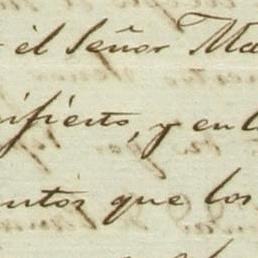 él Señor Ma
nifiesto, y en l
entos que los